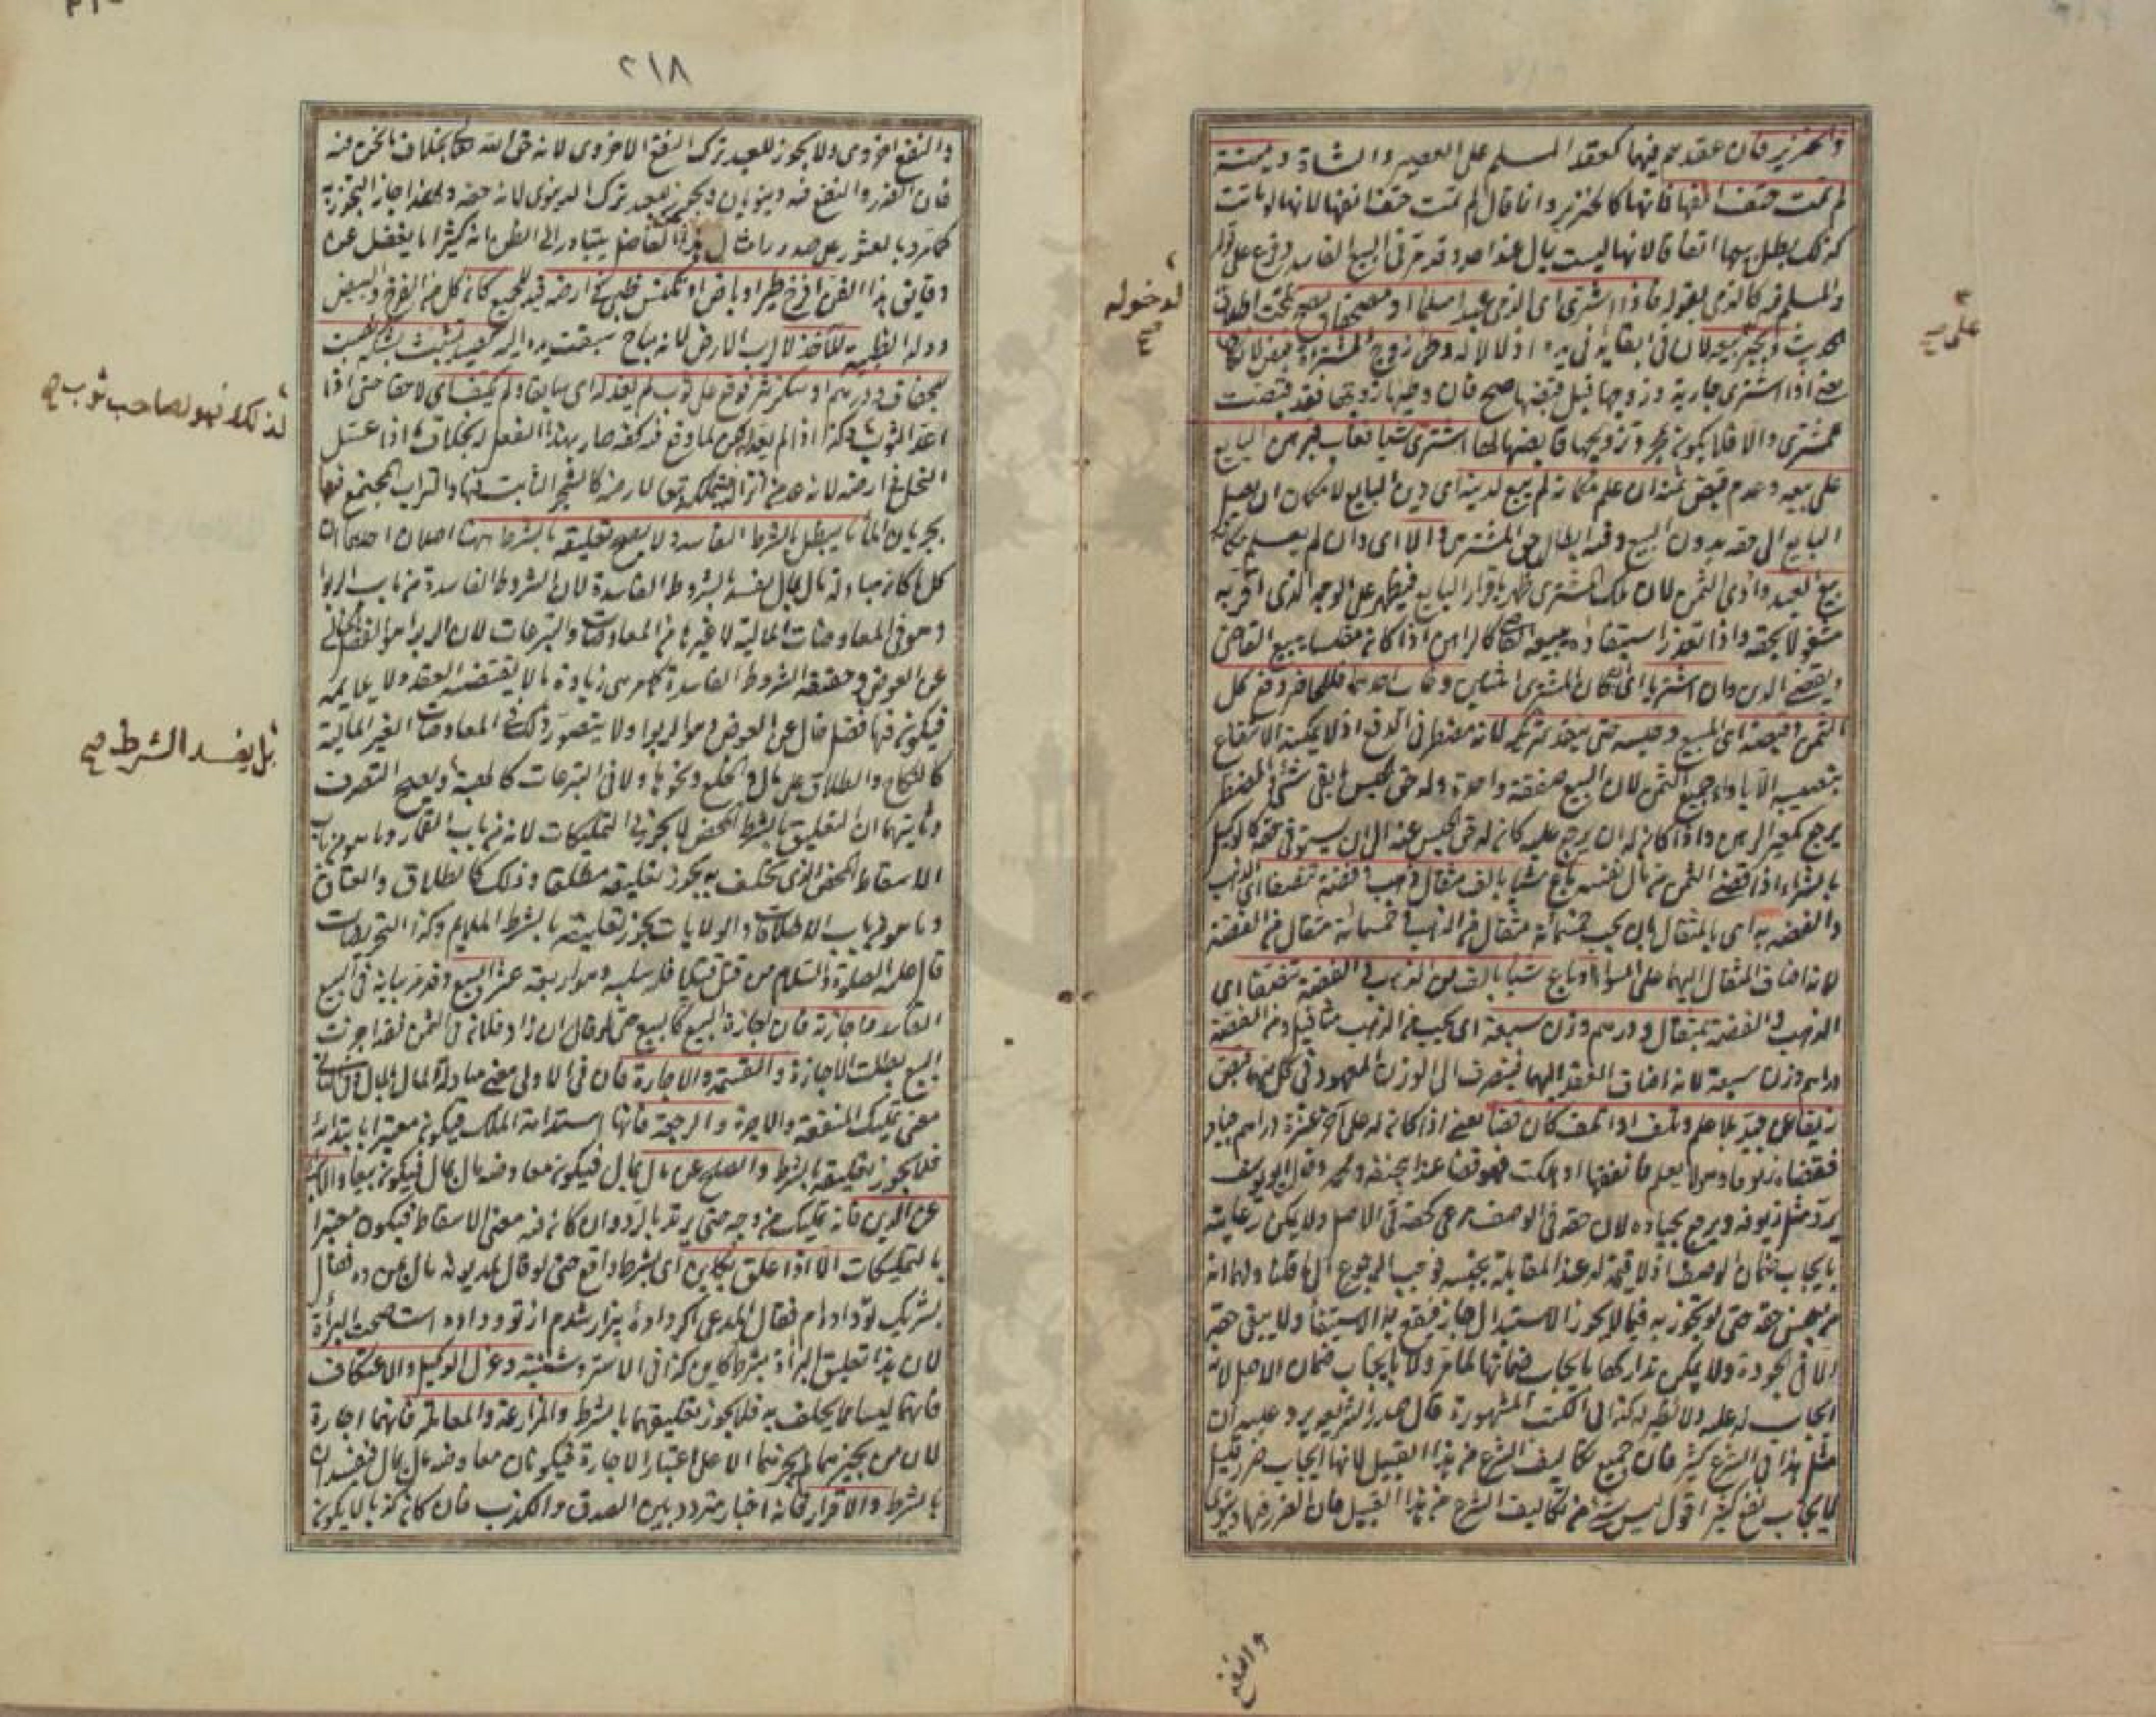 والخنزير فان عقدهم فيهما كعقد المسلم على العصير والشاة وميتة
لم تمت حتف انفها فانها كالخنزير وانما قال لم تمت حتف انفها لانها لو ماتت
كذلك بطل بيعها اتفاقا لانها ليست بمال عند احد وقد مر فى البيع الفاسد وفرع على قوله
والمسلم فيه كالذمى بقوله فاذا اشترى اى الذمى عبدا مسلما او مصحفا
يعنى اذا اشترى جارية وزوجها قبل قبضها صح فان وطئها زوجها فقد قبضت
المشترى والا فلا يكون مجرد تزويجها قابضها لها اشترى شيئا فغاب فبرهن البايع
على بيعه وعدم قبض ثمنه ان علم مكانه لم يبع لدينه اى دين البايع لامكان ان يصل
البايع الى حقه بدون البيع وفيه ابطال حق المشترى والا اى وان لم يعلم مكانه
بيع العبد واوفى الثمن لان ملك المشترى ظهر باقرار البايع فيظهر على الوجه الذى اقر به
مشغولا بحقه واذا تعذر استيفاؤه يبيعه القاضى كالراهن اذا كان مفلسا يبيع القاضى
ويقضى الدين وان اشتريا اى كان المشترى اثنين وغاب احدهما فللحاضر دفع كل
الثمن وقبضه اى المبيع وحبسه حتى ينقد شريكه لانه مضطر فى الدفع اذ لا يمكنه الانتفاع
بنصيبه الا باداء جميع الثمن لان البيع صفقة واحدة وله حق الحبس ما بقى شئ والمضطر
يرجع كمعير الرهن واذا كان له ان يرجع عليه كان له حق الحبس عنه الى ان يستوفى حقه كالوكيل
بالشراء اذا قضى الثمن من مال نفسه باع شيئا بالف مثقال ذهب وفضة تنصفا اى الذهب
والفضة به اى بالمثقال بان يجب خمسمائة مثقال من الذهب وخمسمائة مثقال من الفضة
لانه اضاف المثقال اليهما على السواء او باع شيئا بالف من الذهب والفضة تنصفا اى
الذهب والفضة بمثقال ودرهم وزن سبعة اى يجب من الذهب مثاقيل ومن الفضة
دراهم وزن سبعة لانه اضاف العقد اليهما فينصرف الى الوزن المعهود فى كل منهما قبض
زيفا عن جيد بلا علم وتلف او اتلف كان قضاء يعنى اذا كان له على آخر عشرة دراهم جياد
فقضاه زيوفا وهو لا يعلم فانفقها او هلكت فهو قضاء عند ابى حنيفة ومحمد وقال ابو يوسف
يرد مثل زيوفه ويرجع بجياده لان حقه فى الوصف مرعى كحقه فى الاصل ولا يمكن رعايته
بايجاب ضمان الوصف اذ لا قيمة له عند المقابلة بجنسه فوجب الرجوع الى ما قلنا ولهما انه
من جنس حقه حتى لو تجوز به فيما لا يجوز الاستبدال جاز فيقع به الاستيفاء ولا يبقى حقه
الا فى الجودة ولا يمكن تداركها بايجاب ضمانها لما مر ولا بايجاب ضمان الاصل لانه
ايجاب له عليه ولا نظير له كذا فى الكتب المشهورة قال صدر الشريعة يرد عليه ان
مثل هذا فى الشرع كثير فان جميع تكاليف الشرع من هذا القبيل لانها ايجاب ضرر قليل
لايجاب نفع كثير اقول ليس شئ من تكاليف الشرع من هذا القبيل فان الضرر فيها دنيوى
لدخوله
صح
والنفع
٢١٨
والنفع اخروى ولا يجوز للعبد ترك النفع الاخروى لانه حق الله تعالى بخلاف ما نحن فيه
فان الضرر والنفع فيه دنيويان ويجوز للعبد ترك الدنيوى لانه حقه ولهذا جاز التجوز به
كما مر وبالعثور على صدور امثال هذا الفاضل يتبادر الى الظن انه كثيرا ما يغفل عن
دقايق هذا الفن افرخ طير او باض او تكنس ظبى فى ارضه فيه للجميع كان كل من الفرخ والبيض
وولد الظبية للآخذ لا لرب الارض لانه مباح سبقت يده اليه كصيد تشبث بشبكة نصبت
للجفاف ودرهم او سكر نثر فوقع على ثوب لم يعد له اى سابقا ولم يكف اى لاحقا حتى اذا
اعد الثوب وكذا اذا لم يعد لكن لما وقع فيه كفه صار بهذا الفعل له بخلاف ما اذا عسل
النحل فى ارضه لانه عد من انزاله فيملكه تبعا لارضه كالشجر النابت فيها والتراب المجتمع فيها
بجريان الماء ما يبطل بالشرط الفاسد ولا يصح تعليقه بالشرط ههنا اصلان احدهما ان
كل ما كان مبادلة مال بمال يفسد بالشروط الفاسدة لان الشروط الفاسدة من باب الربوا
وهو فى المعاوضات المالية لا غيرها من المعاوضات والتبرعات لان الربوا هو الفضل الخالى
عن العوض وحقيقة الشروط الفاسدة كما مر هى زيادة ما لا يقتضيه العقد ولا يلايمه
فيكون فيها فضل خال عن العوض وهو الربوا ولا يتصور ذلك فى المعاوضات الغير المالية
كالنكاح والطلاق على مال والخلع ونحوها ولا فى التبرعات كالهبة ويصح التصرف
وثانيهما ان التعليق بالشرط المحض لا يجوز فى التمليكات لانه من باب القمار وما هو من باب
الاسقاط المحض الذى يحلف به يجوز تعليقه مطلقا وذلك كالطلاق والعتاق
وما هو من باب الاطلاقات والولايات يجوز تعليقه بالشرط الملايم وكذا التحريضات
قال عليه الصلوة والسلام من قتل قتيلا فله سلبه وهو اربعة عشر البيع وقد مر بيانه فى البيع
الفاسد واجازته فان اجازة البيع كالبيع حتى لو قال ان زاد فلان فى الثمن فقد اجزت
البيع بطلت الاجازة والقسمة والاجارة فان فى الاولى معنى مبادلة المال بالمال وفى الثانى
معنى تمليك المنفعة والاجرة والرجعة فانها استدامة الملك فيكون معتبرا بابتدائه
فلا يجوز تعليقه بالشرط والصلح عن مال بمال فيكون معاوضة مال بمال فيكون بيعا والابراء
عن الدين فانه تمليك من وجه حتى يرتد بالرد وان كان فيه معنى الاسقاط فيكون معتبرا
بالتمليكات الا اذا علق بكاين اى بشرط واقع حتى لو قال لمديونه مال من ده فقال
بشريك تو دادم فقال المدعى اكر دادۀ بيزار شدم از تو وداده است صحت البراءة
لان هذا تعليق البراءة بشرط كاين كذا فى الاستروشنية وعزل الوكيل والاعتكاف
فانهما ليسا مما يحلف به فلا يجوز تعليقهما بالشرط والمزارعة والمعاملة فانهما اجارة
لان من يجيزهما لم يجزهما الا على اعتبار الاجارة فيكونان معاوضة مال بمال فيفسدان
بالشرط والاقرار فانه اخبار متردد بين الصدق والكذب فان كان كذبا لا يكون
لذلك فهو لصاحب ثوب صح
بل يفسد الشرط صح